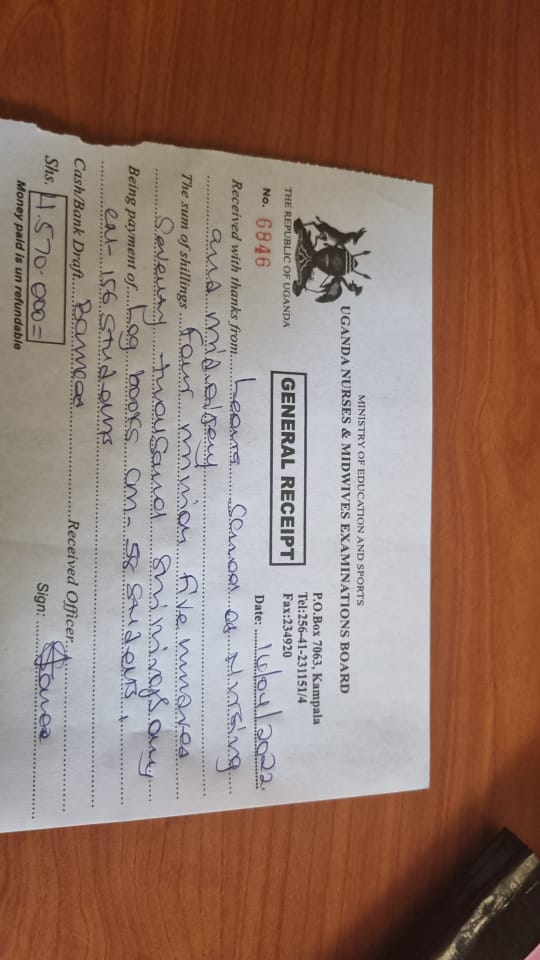 MINISTRY OF EDUCATION AND SPORTS
UGANDA NURSES & MIDWIVES EXAMINATIONS BOARD
THE REPUBLIC OF UGANDA
P.O.Box 7063, Kampala
Tel:256-41-231151/4
Fax:234920
GENERAL RECEIPT
No. 6846
Date: 14/04/2022
Received with thanks from School of Nursing
and midwifery
The sum of shillings Four million five hundred
Seventy thousand shillings only
Being payment of Log books cm- 58 students,
cn- 156 students
Cash/Bank Draft
Received Officer
Shs. 4.570.000=
Sign:
Money paid is un refundable